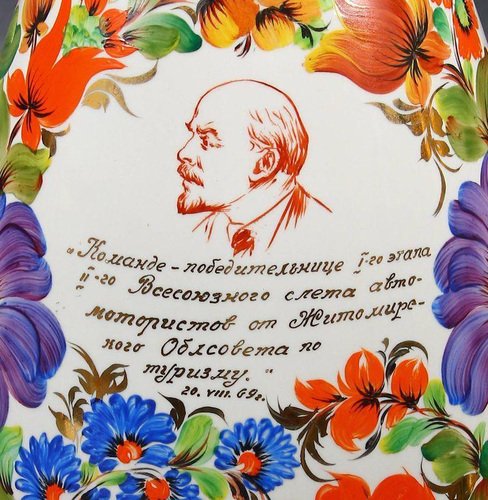 "Команде-победительнице I-го этапа
II-го Всесоюзного слета авто-
мотористов от Житомирс-
кого Облсовета по
туризму."
20. VIII. 69г.